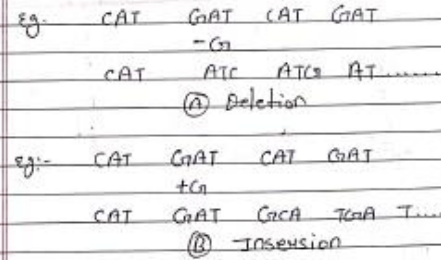 Eg.- CAT GAT CAT GAT
-G
CAT ATC ATG AT......
Ⓐ Deletion
Eg:- CAT GAT CAT GAT
+G
CAT GAT GCA TGA T....
Ⓑ Insersion